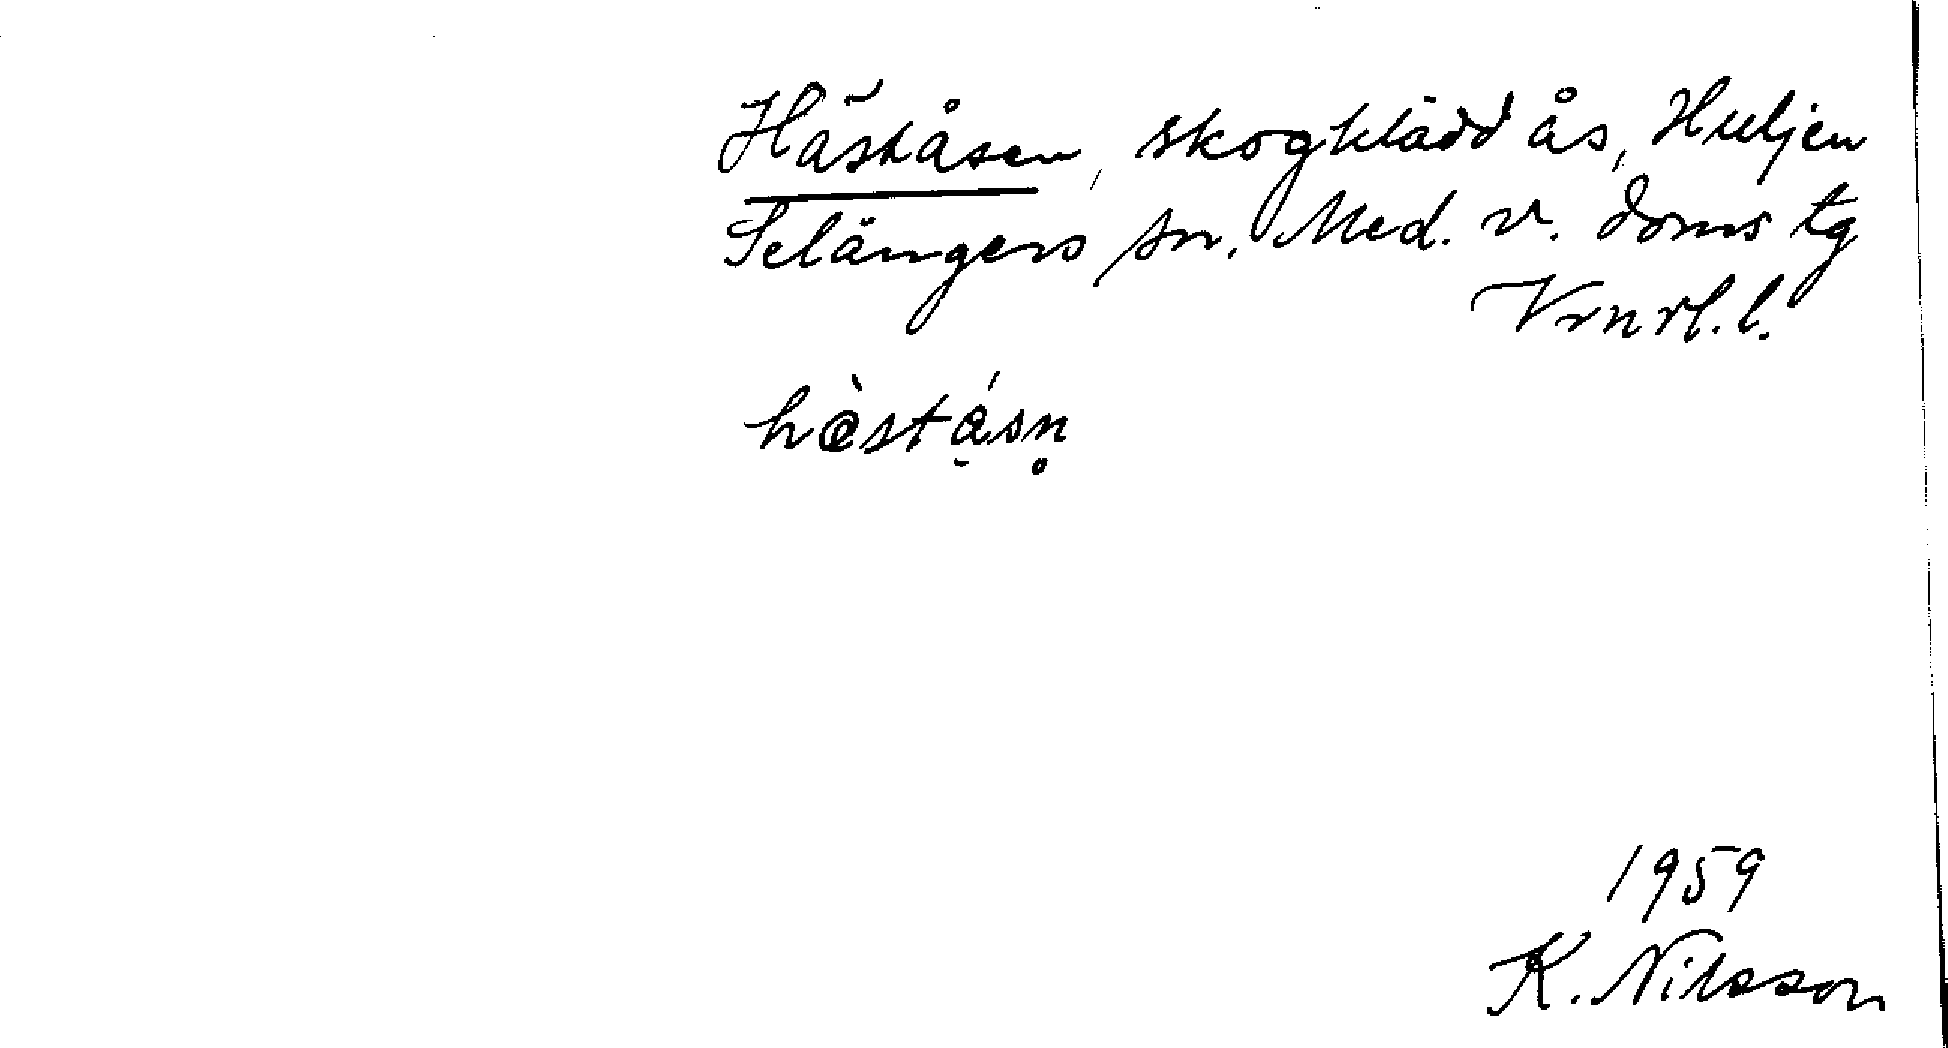 Häståsen, skogklädd ås, Huljen
Selångers sn. Med. v. doms tg
Vrnrl. l.
hàstásn̥
1959
K. Nilsson